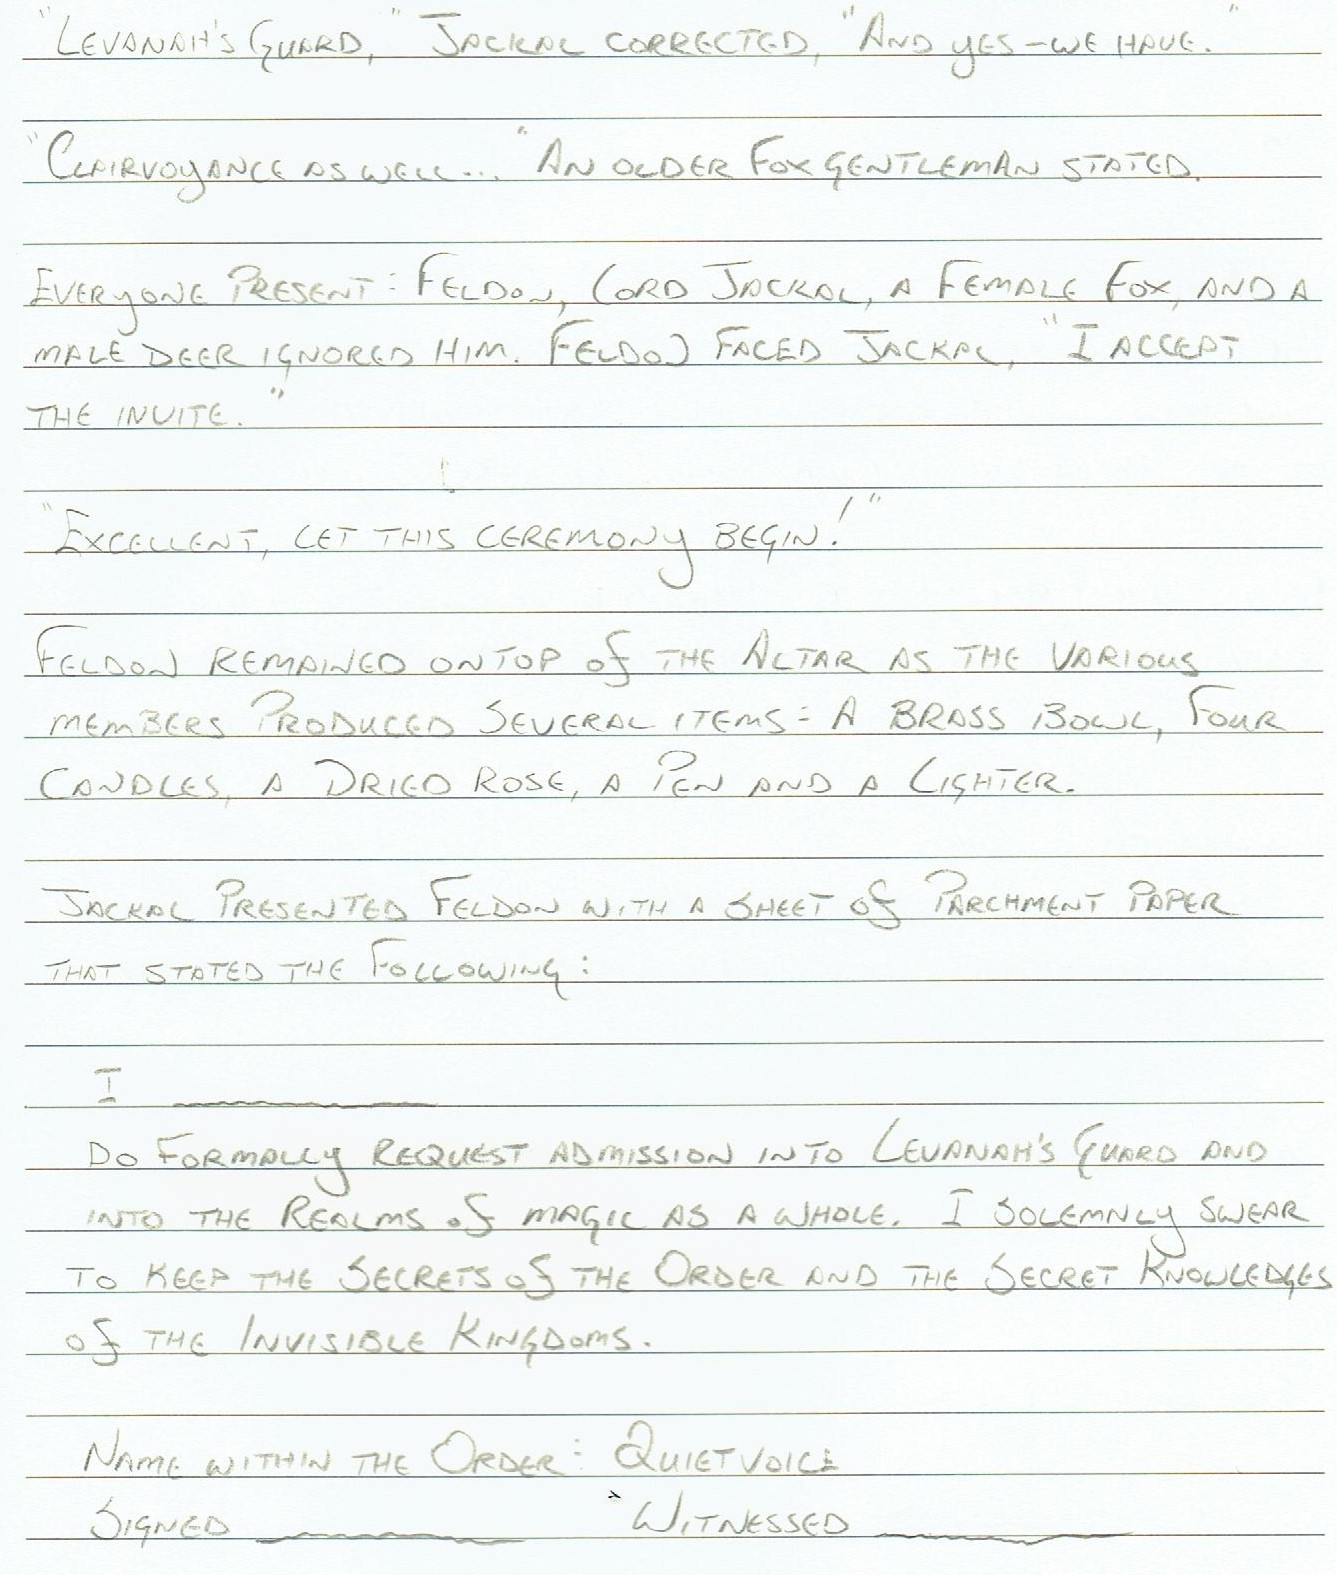 "Levanah's Guard," Jackal corrected, "And yes - we have."
"Clairvoyance as well..." An older Fox gentleman stated.
Everyone Present: Feldon, Lord Jackal, a Female Fox, and a
male deer ignored him. Feldon faced Jackal, "I accept
the invite."
"Excellent, let this ceremony begin!"
Feldon remained on top of the Altar as the various
members Produced Several items: A brass bowl, Four
Candles, a Dried Rose, a Pen and a Lighter.
Jackal Presented Feldon with a sheet of Parchment Paper
that stated the Following:
I ________
Do Formally request admission into Levanah's Guard and
into the Realms of magic as a whole. I solemnly swear
to keep the Secrets of the Order and the Secret Knowledges
of the Invisible Kingdoms.
Name within the Order: Quietvoice
Signed ________ Witnessed ________